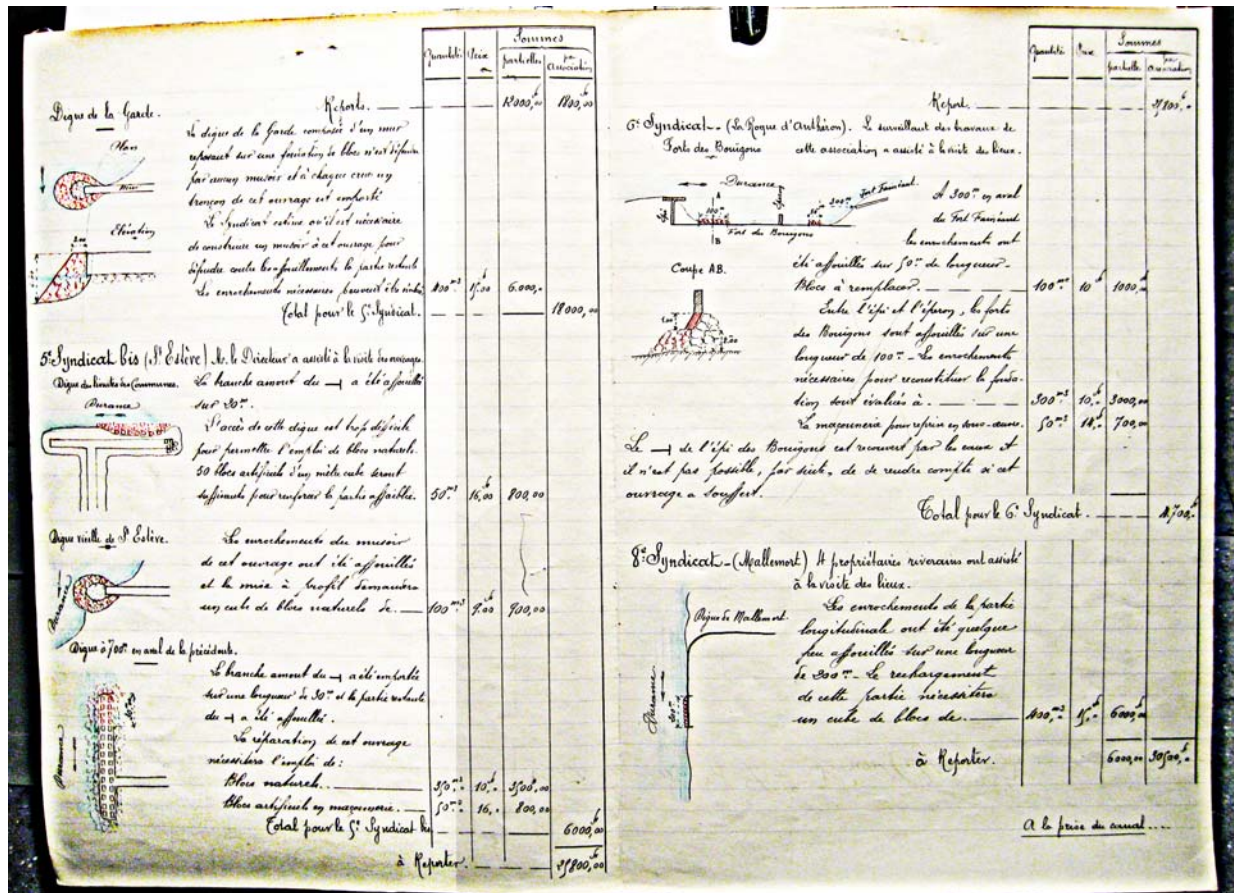 Quantité Prix Sommes
partielles par Association
Digue de la Garde.
Reports. 12000,00 1800,00
Plan
Mur
Elévation
2.00
La digue de la Garde composée d'un mur
reposant sur une fondation de blocs n'est défendue
par aucun musoir et à chaque crue un
tronçon de cet ouvrage est emporté
Le Syndicat estime qu'il est nécessaire
de construire un musoir à cet ouvrage pour
défendre contre les affouillements la partie restante
Les enrochements nécessaires peuvent être évalués 400m3 15,00 6.000,-
Total pour le 5e Syndicat. 18000,00
5e Syndicat bis (St Estève) M. le Directeur a assisté à la visite des ouvrages.
Digue des limites des Communes.
Durance
La branche amont du ⊣ a été affouillée
sur 20m.
L'accès de cette digue est trop difficile
pour permettre l'emploi de blocs naturels.
50 blocs artificiels d'un mètre cube seront
suffisants pour renforcer la partie affaiblie. 50m3 16,00 800,00
Digue vieille de St Estève.
Durance
Les enrochements du musoir
de cet ouvrage ont été affouillés
et la mise à profil demandera
un cube de blocs naturels de. 100m3 9,00 900,00
Digue à 700m en aval de la précédente.
Durance
La branche amont du ⊣ a été emportée
sur une longueur de 30m et la partie restante
du ⊣ a été affouillée.
La réparation de cet ouvrage
nécessitera l'emploi de:
Blocs naturels. 350m3 10f 3500f,00
Blocs artificiels en maçonnerie. 50m3 16,- 800,00
Total pour le 5e Syndicat bis 6000,00
à Reporter. 25800,00
Quantité Prix Sommes
partielle par association
Report. 25800,-
6e Syndicat - (La Roque d'Anthéron). Le surveillant des travaux de
Forts des Bouigons cette association a assisté à la visite des lieux.
Durance
A
Epi
100m
Eperon
300m
Fort Fainéant
B
Fort des Bouigons
A 300m en aval
du Fort Fainéant
les enrochements ont
été affouillés sur 50m de longueur.
Coupe AB.
2.00
Blocs à remplacer. 100m3 10f 1000f,00
Entre l'épi et l'éperon, les forts
des Bouigons sont affouillés sur une
longueur de 100m - Les enrochements
nécessaires pour reconstituer la fonda-
tion sont évalués à. 300m3 10,- 3000,00
La maçonnerie pour reprise en sous-œuvre. 50m3 14,- 700,00
Le ⊣ de l'épi des Bouigons est recouvert par les eaux et
il n'est pas possible, par suite, de se rendre compte si cet
ouvrage a souffert.
Total pour le 6e Syndicat. 4.700,-
8e Syndicat - (Mallemort) 4 propriétaires riverains ont assisté
à la visite des lieux.
Digue de Mallemort.
Durance
200m
Les enrochements de la partie
longitudinale ont été quelque
peu affouillés sur une longueur
de 200m - Le rechargement
de cette partie nécessitera
un cube de blocs de. 400m3 15f,- 6000f,00
à Reporter. 6000,00 30500f,-
A la prise du canal....